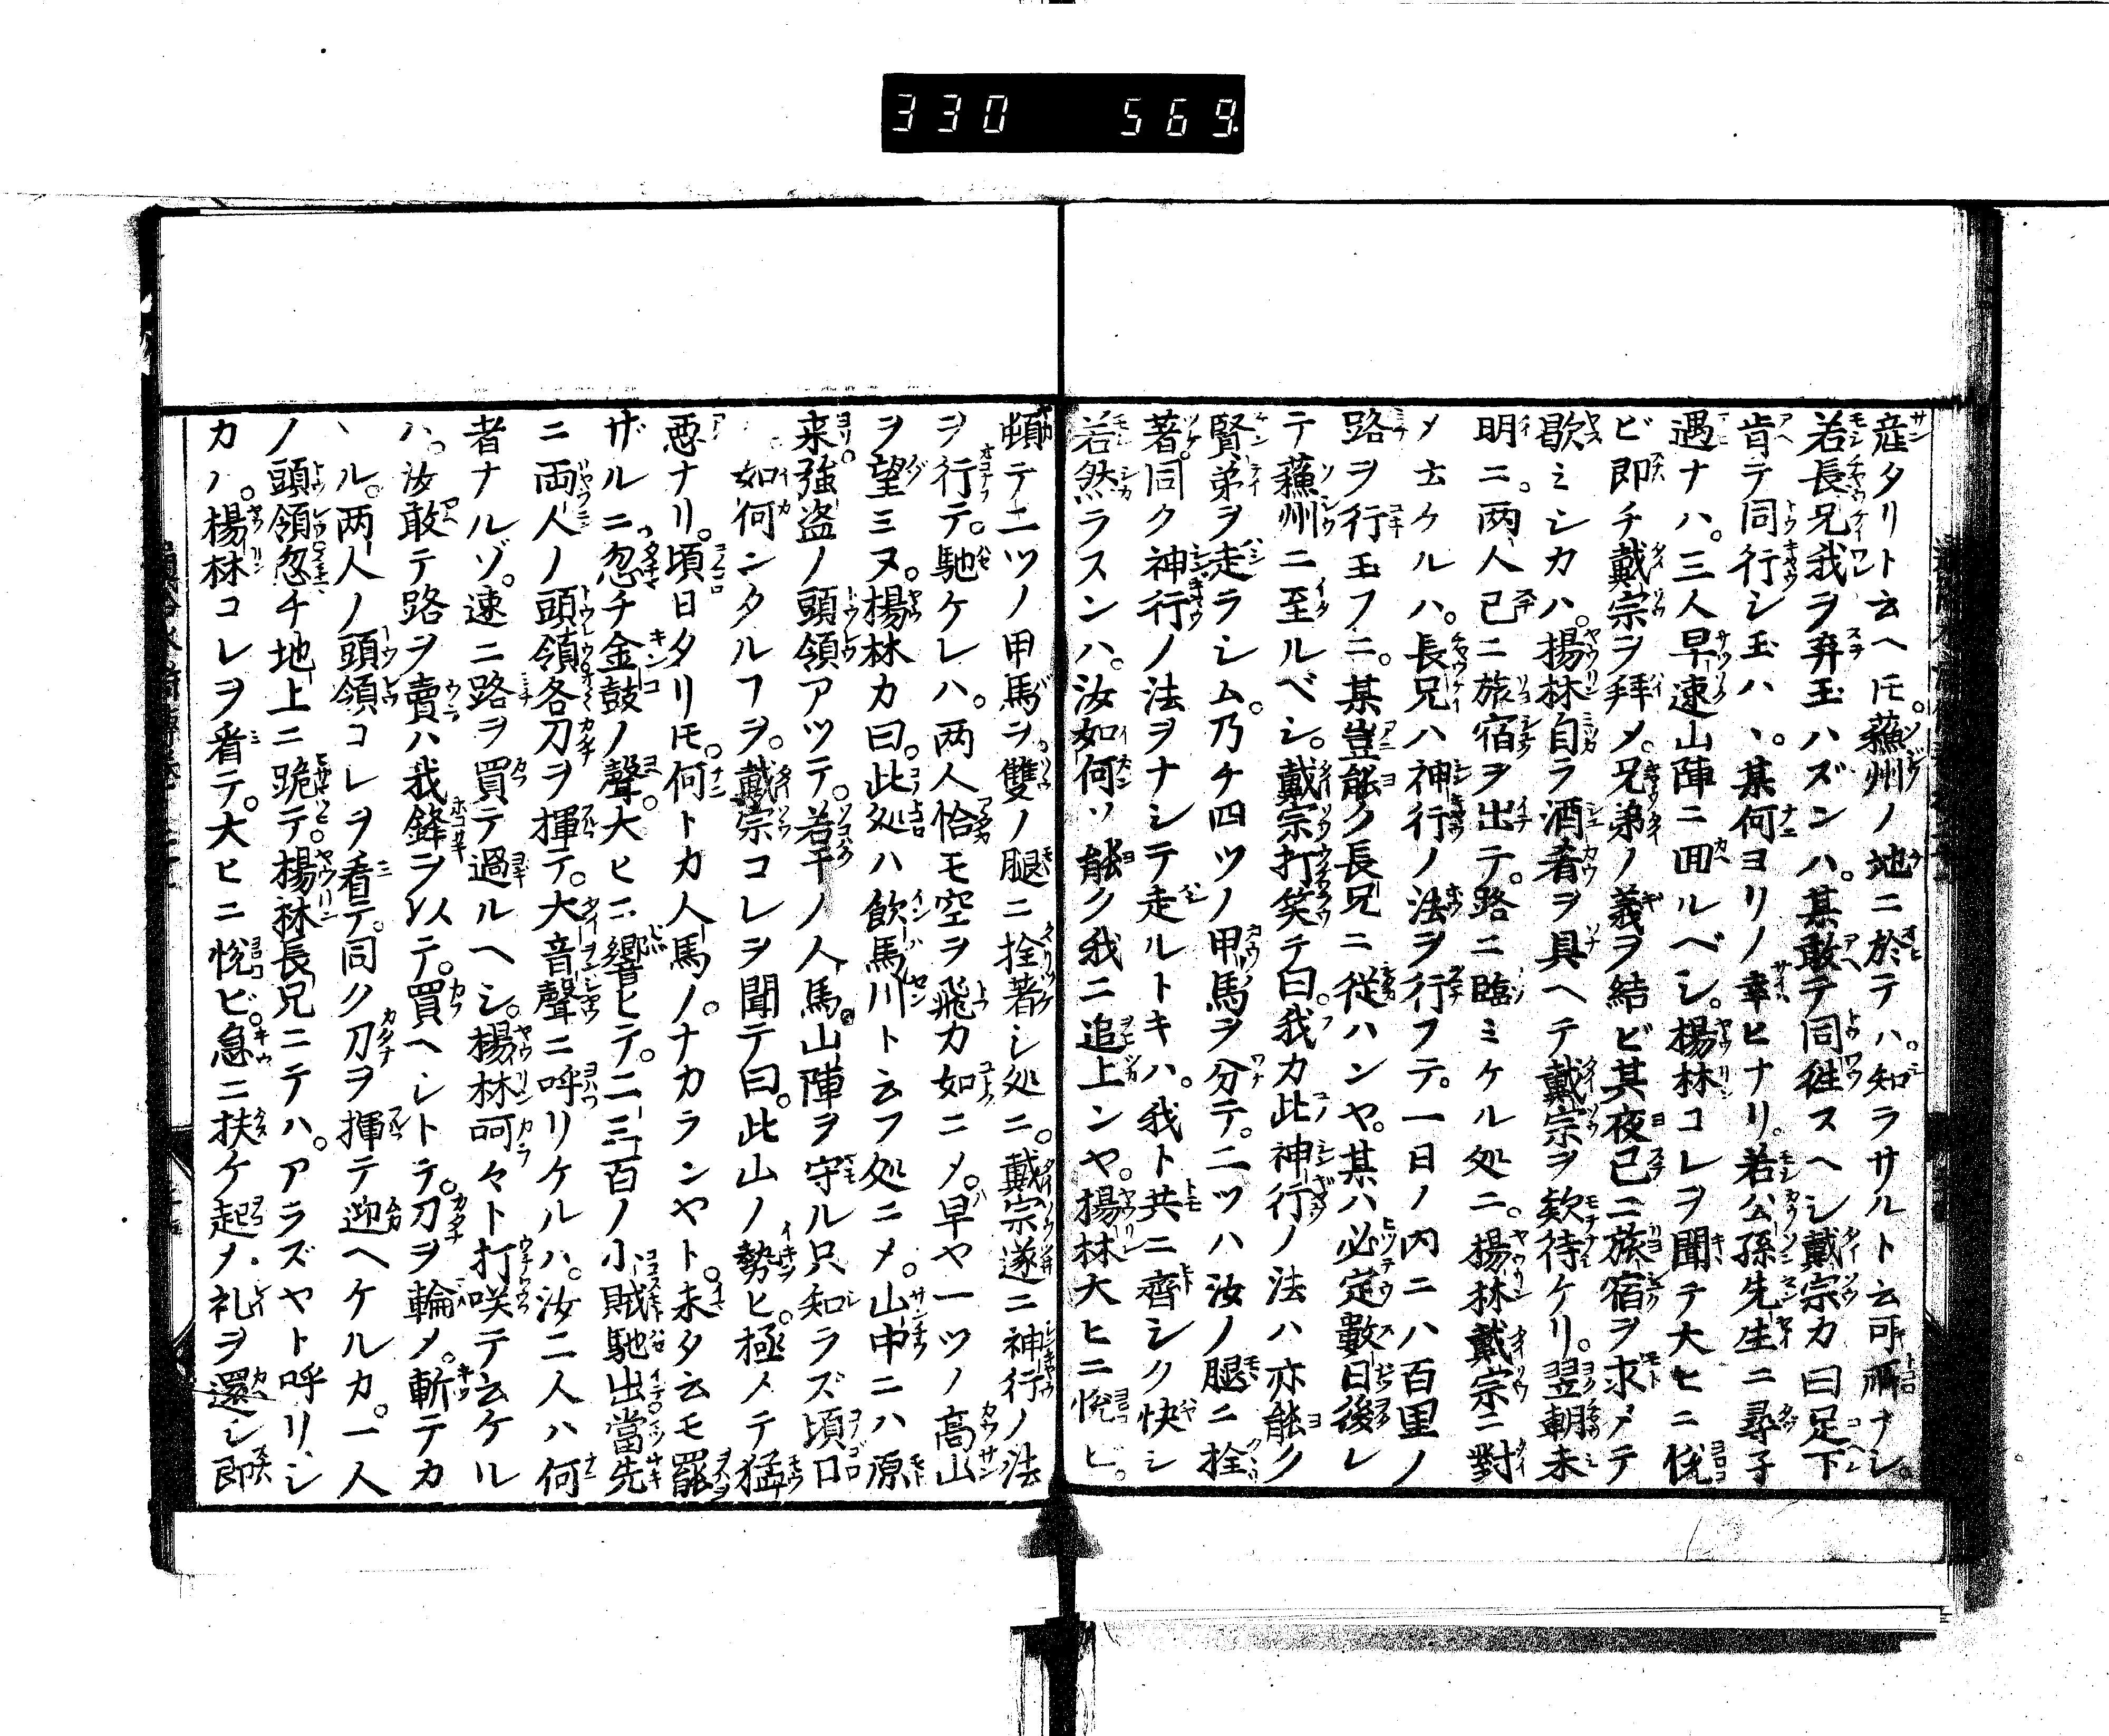 330 569.
産タリト云ヘ𪜈。蘓州ノ地ニ於テハ。知ラサルト云可所ナシ。
若長兄我ヲ弃玉ハズンハ。某敢テ同往スヘシ戴宗カ曰足下
肯テ同行シ玉ハヽ。某何ヨリノ幸ヒナリ。若公孫先生ニ尋子
遇ナハ。三人早速山陣ニ囬ルベシ。楊林コレヲ聞テ大ヒニ悦
ビ即チ戴宗ヲ拜メ。兄弟ノ義ヲ結ビ其夜已ニ旅宿ヲ求メテ
歇ミシカハ。楊林自ラ酒肴ヲ具ヘテ戴宗ヲ欵待ケリ。翌朝未
明ニ。两人已ニ旅宿ヲ出テ。路ニ臨ミケル処ニ。楊林戴宗ニ對
メ云ケルハ。長兄ハ神行ノ法ヲ行フテ。一日ノ内ニハ百里ノ
路ヲ行玉フニ。某豈能ク長兄ニ従ハンヤ。某ハ必定數日後レ
テ蘓州ニ至ルベシ。戴宗打笑テ曰。我カ此神行ノ法ハ亦能ク
賢弟ヲ走ラシム。乃チ四ツノ甲馬ヲ分テ。二ツハ汝ノ腿ニ拴
著。同ク神行ノ法ヲナシテ走ルトキハ。我ト共ニ齊シク快シ
若然ラスンハ。汝如何ソ能ク我ニ追上ンヤ。楊林大ヒニ悦ビ。
頓テ二ツノ甲馬ヲ。雙ノ腿ニ拴著シ処ニ。戴宗遂ニ神行ノ法
ヲ行テ。馳ケレハ。两人恰モ空ヲ飛カ如ニメ。早ヤ一ツノ高山
ヲ望ミヌ。楊林カ曰。此処ハ飲馬川ト云フ処ニメ。山中ニハ原
来強盗ノ頭領アツテ。若干ノ人馬。山陣ヲ守ル只知ラズ頃日
ハ如何ンタルフヲ。戴宗コレヲ聞テ曰。此山ノ勢ヒ。極メテ猛
悪ナリ。頃日タリ𪜈。何トカ人馬ノ。ナカランヤト。未タ云モ罷
ザルニ。忽チ金鼓ノ聲。大ヒニ響ヒテ。二三百ノ小賊馳出當先
ニ両人ノ頭領各刀ヲ揮テ。大音聲ニ呼リケルハ。汝二人ハ何
者ナルゾ。速ニ路ヲ買テ過ルヘシ。楊林呵々ト打咲テ云ケル
ハ。汝敢テ路ヲ賣ハ我鋒ヲ以テ。買ヘシトテ。刀ヲ輪メ。斬テカ
ヽル。两人ノ頭領コレヲ看テ。同ク刀ヲ揮テ迎ヘケルカ。一人
ノ頭領忽チ地上ニ跪テ。楊林長兄ニテハ。アラズヤト呼リシ
カハ。楊林コレヲ看テ。大ヒニ悦ビ。急ニ扶ケ起メ。礼ヲ還シ即